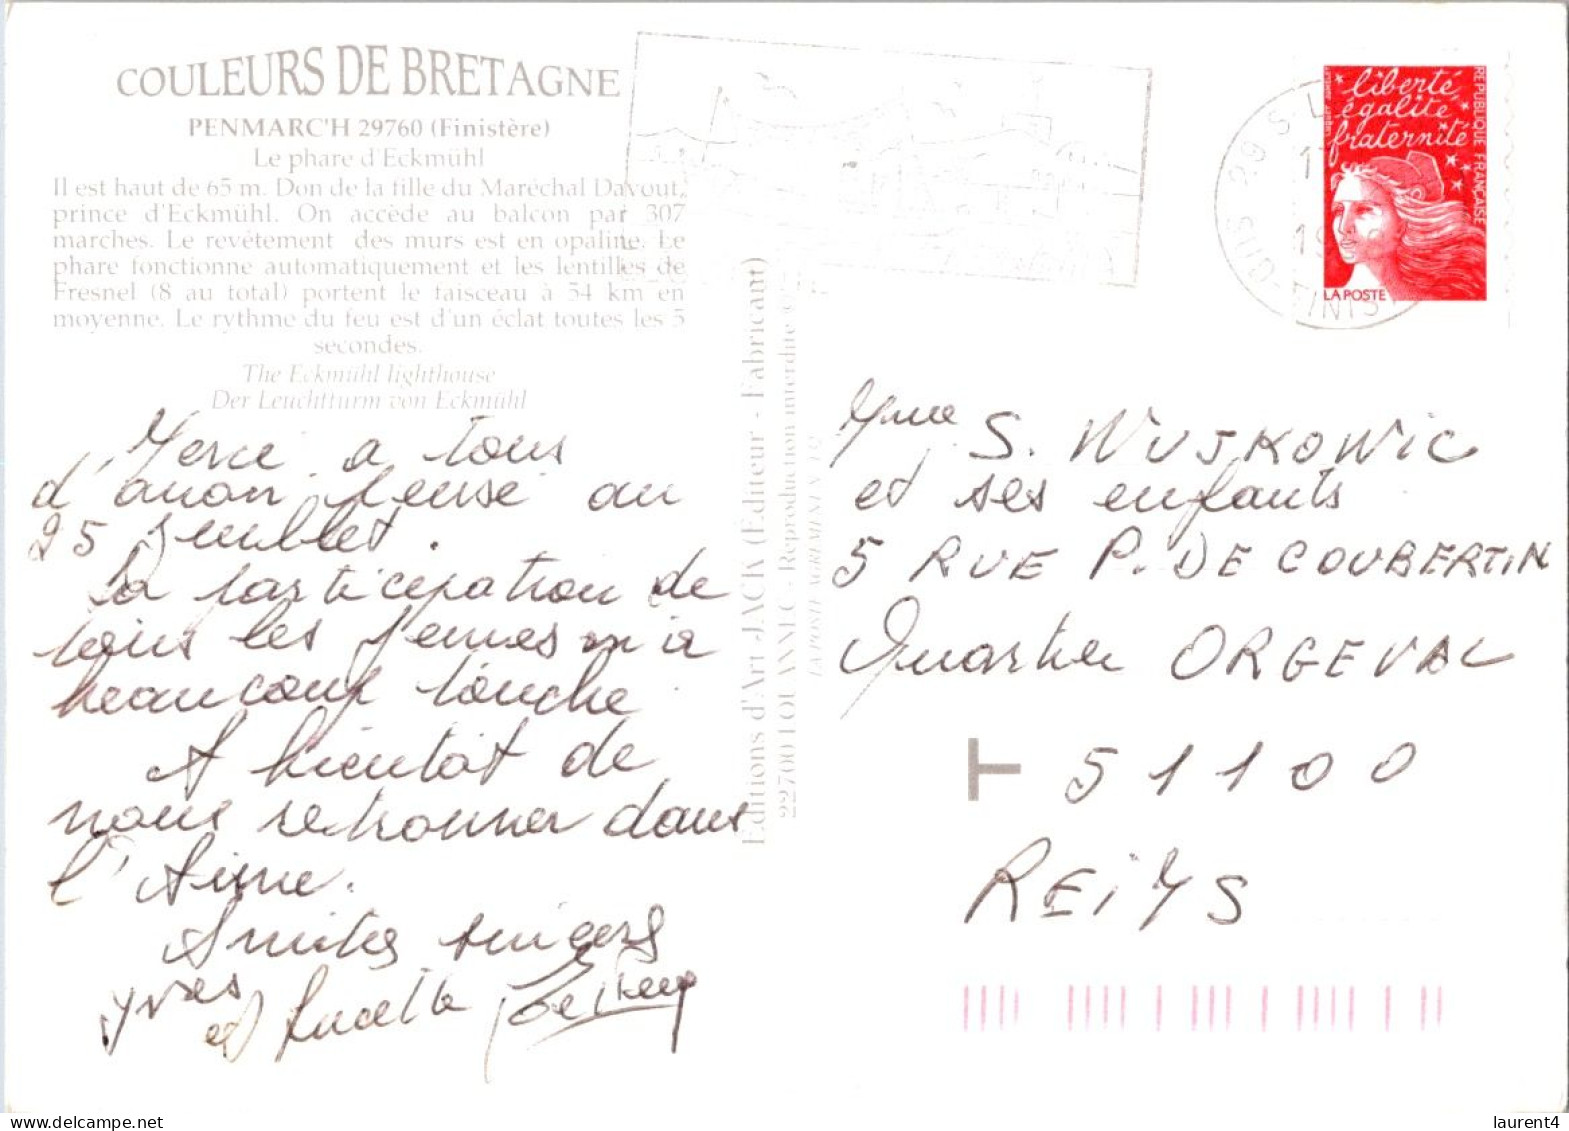 COULEURS DE BRETAGNE
PENMARC'H 29760 (Finistère)
Le phare d'Eckmühl
Il est haut de 65 m. Don de la fille du Maréchal Davout,
prince d'Eckmühl. On accède au balcon par 307
marches. Le revêtement des murs est en opaline. Le
phare fonctionne automatiquement et les lentilles de
Fresnel (8 au total) portent le faisceau à 54 km en
moyenne. Le rythme du feu est d'un éclat toutes les 5
secondes.
The Eckmühl lighthouse
Der Leuchtturm von Eckmühl
Merci a tous
d'avoir pensé au
25 Juillet.
La participation de
tous les jeunes m'a
beaucoup touché
A bientôt de
nous retrouver dans
l'Aisne.
Amitiés sincères
Yves
et Lucette
Editions d'Art JACK (Editeur - Fabricant)
22700 LOUANNEC - Reproduction interdite
LA POSTE AGREMENT
liberté
égalité
fraternité
REPUBLIQUE FRANÇAISE
LA POSTE
29 S
19
FINIS
Mme S. WUJKOWIC
et ses enfants
5 RUE P. DE COUBERTIN
Quartier ORGEVAL
T 51100
REIMS
laurent4